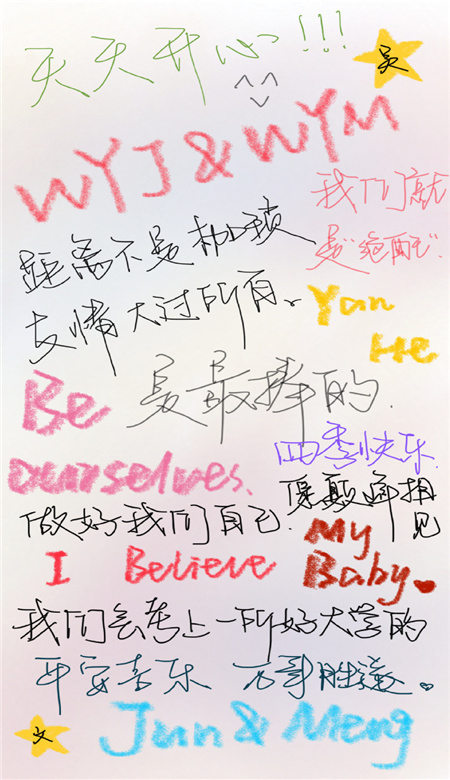 天天开心!!!
吴
^^
WYJ&WYM
我们就
是"绝配".
距离不是枷锁
友情大过所有。
Yan
He
Be
是最棒的.
ourselves.
四季快乐
巅峰相见
做好我们自己.
My
Baby.
I Believe
我们会考上一所好大学的
平安喜乐 万事胜意。
文
Jun & Meng